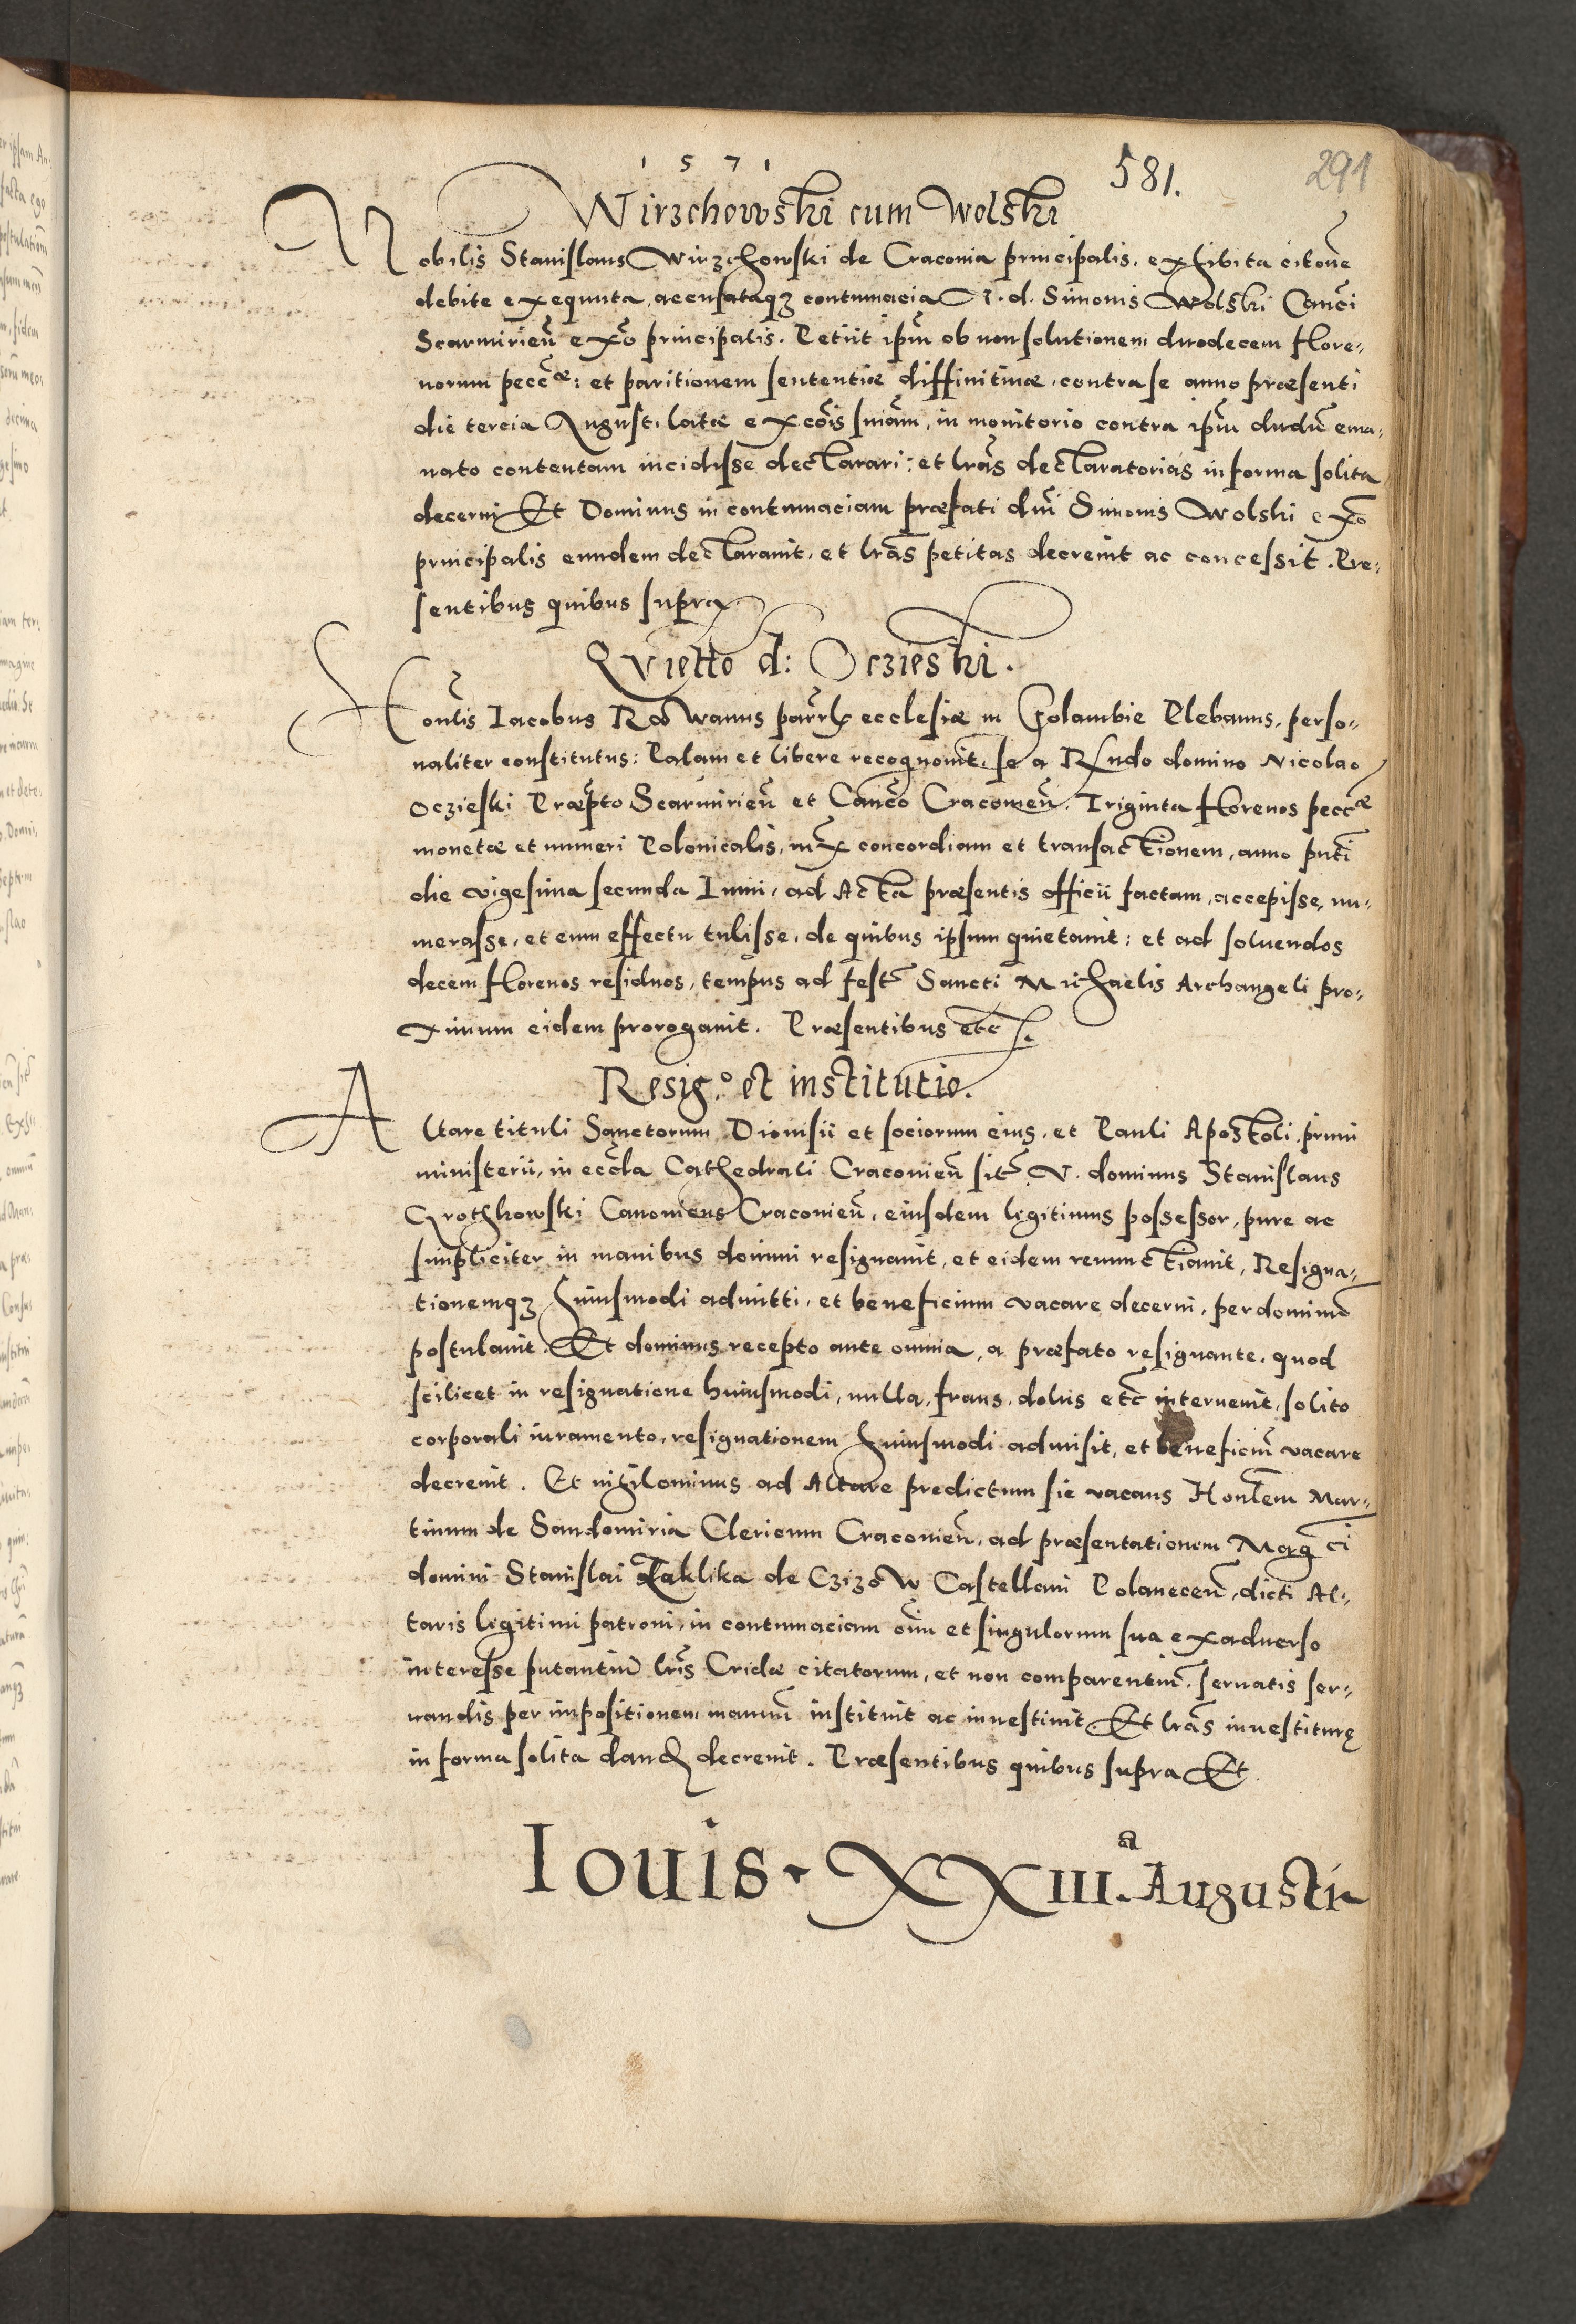 1571
581.
291
Wirzchowski cum Wolski
Nobilis Stanislaus Wirzchowski de Craconia principalis, exhibita citōne
debite exequuta, accusataqȝ contumacia V. d. Simonis Wolski Canci
Scarmirieñ exō principalis. Petiit ipm̄ ob non solutionem duodecem flore,,
norum pecc̄æ: et paritionem sententiæ diffinitiuæ, contra se anno præsenti
die tercia Augusti latæ excōis sniam̄, in monitorio contra ipm̄ dudū ema,,
nato contentam incidisse declarari: et lrās declaratorias in forma solita
decerni. Et Dominus in contumaciam præfati dn̄i Simonis Wolski exō
principalis eundem declarauit, et lrās petitas decreuit ac concessit. Pre,,
sentibus quibus supra.
Quietto d: Oczieski.
Honlis Iacobus Rowanus parrłs ecclesiæ in Golambie Plebanus, perso,,
naliter constitutus: Palam et libere recognouit, se a Rndo domino Nicolao
Oczieski Præpto Scarmirieñ et Canco Cracouieñ. Triginta florenos pecc̄æ
monetæ et numeri Polonicalis, iux̄ concordiam et transactionem, anno pn̄ti
die vigesima secunda Iunii, ad Acta præsentis officii factam, accepisse, nu,,
merasse, et cum effectu tulisse, de quibus ipsum quietauit: et ad soluendos
decem florenos residuos, tempus ad fest̄ Sancti Michaelis Archangeli pro,,
ximum eidem prorogauit. Præsentibus etc̄ s.
Resig.º et institutio.
Altare tituli Sanctorum Dionisii et sociorum eius, et Pauli Apostoli, primi
ministerii, in eccl̄a Cathedrali Craconieñ sit̄ V. dominus Stanislaus
Grothkowski Canonicus Craconieñ, eiusdem legitimus possessor, pure ac
simpliciter in manibus domini resignauit, et eidem renunctiauit, Resigna,,
tionemqȝ huiusmodi admitti, et beneficium vacare decerni, per dominū
postulauit. Et dominus recepto ante omnia, a præfato resignante, quod
scilicet in resignatione huiusmodi, nulla, fraus, dolus etc̄ interuenit, solito
corporali iuramento, resignationem huiusmodi admisit, et beneficiū vacare
decreuit. Et nihilominus ad Altare predictum sic vacans Honlem Mar,,
tinum de Sandomiria Clericum Craconieñ, ad præsentationem Magci
domini Stanislai Zaklika de Czizow Castellani Polaneceñ, dicti Al,,
taris legitimi patroni, in contumaciam om̄ et singulorum sua ex aduerso
interesse putantiū lrīs Cridæ citatorum, et non comparentiū, seruatis ser,,
uandis per impositionem manuū instituit ac inuestiuit. Et lrās inuestiturę
in forma solita dand̄ decreuit. Præsentibus quibus supra Et.
Iouis. XXIII.a Augusti